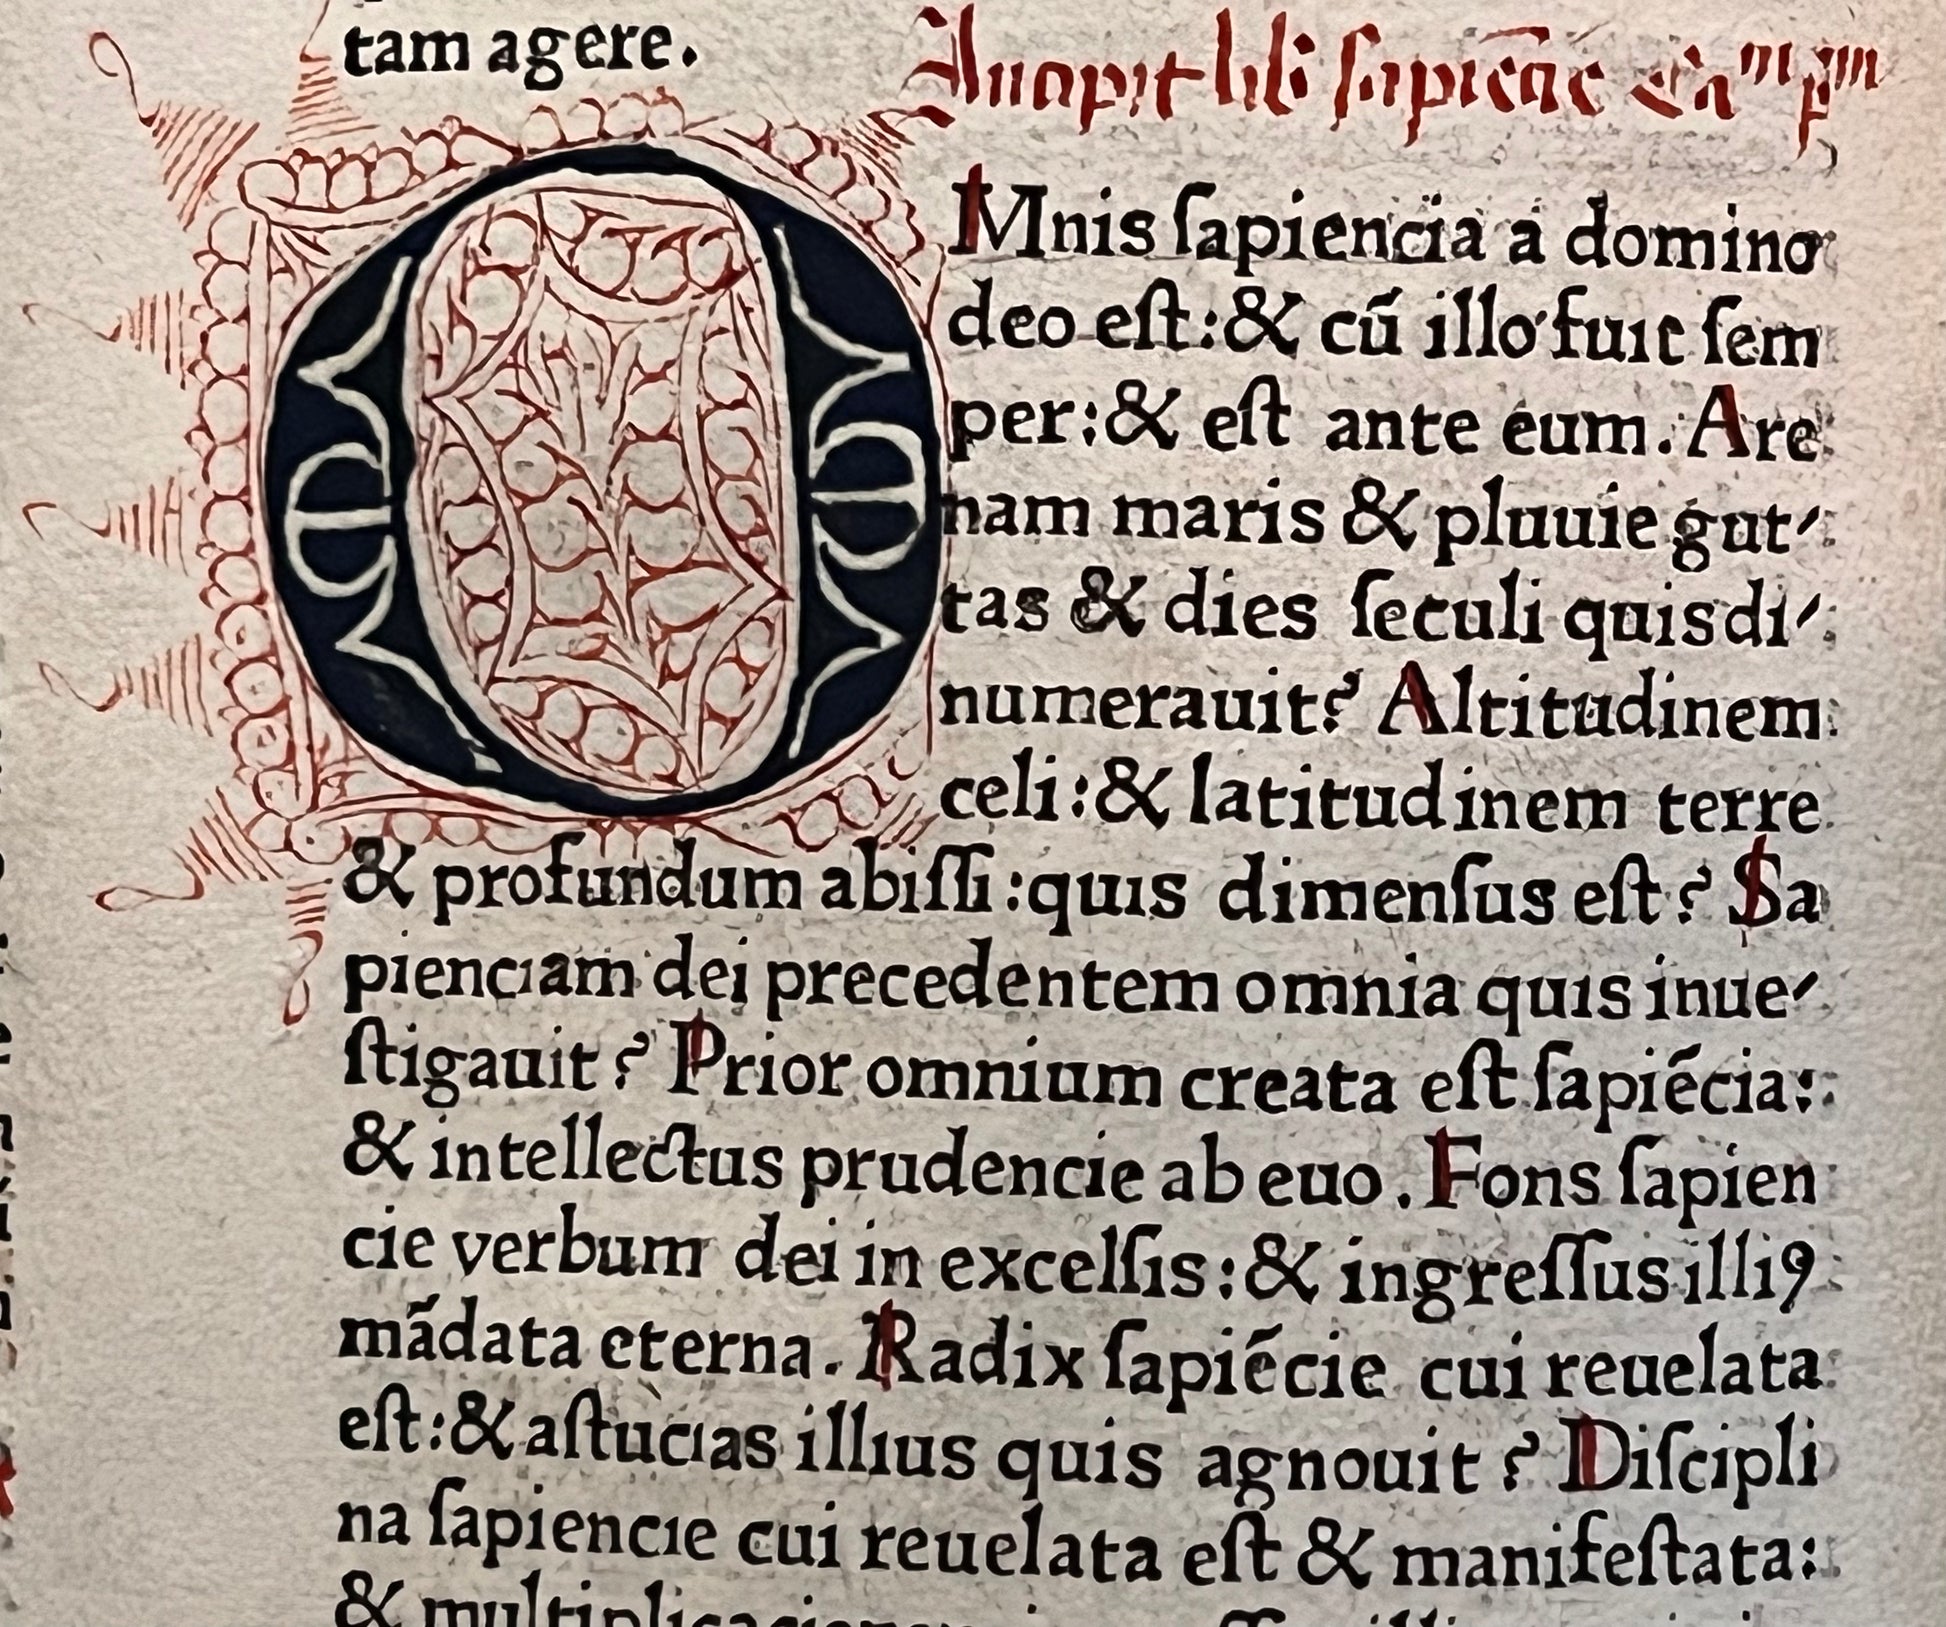 tam agere.
Incipit lib sapiēcie Caᵐ pᵐ
OMnis ſapiencia a domino
deo eſt:& cū illo fuit ſem
per:& eſt ante eum. Are
nam maris & pluuie gut⸗
tas & dies ſeculi quis di⸗
numerauit? Altitudinem
celi:& latitudinem terre
& profundum abiſſi:quis dimenſus eſt? Sa
pienciam dei precedentem omnia quis inue⸗
ſtigauit? Prior omnium creata eſt ſapiēcia:
& intellectus prudencie ab euo. Fons ſapien
cie verbum dei in excelſis:& ingreſſus illiꝰ
mādata eterna. Radix ſapiēcie cui reuelata
eſt:& aſtucias illius quis agnouit? Diſcipli
na ſapiencie cui reuelata eſt & manifeſtata:
&